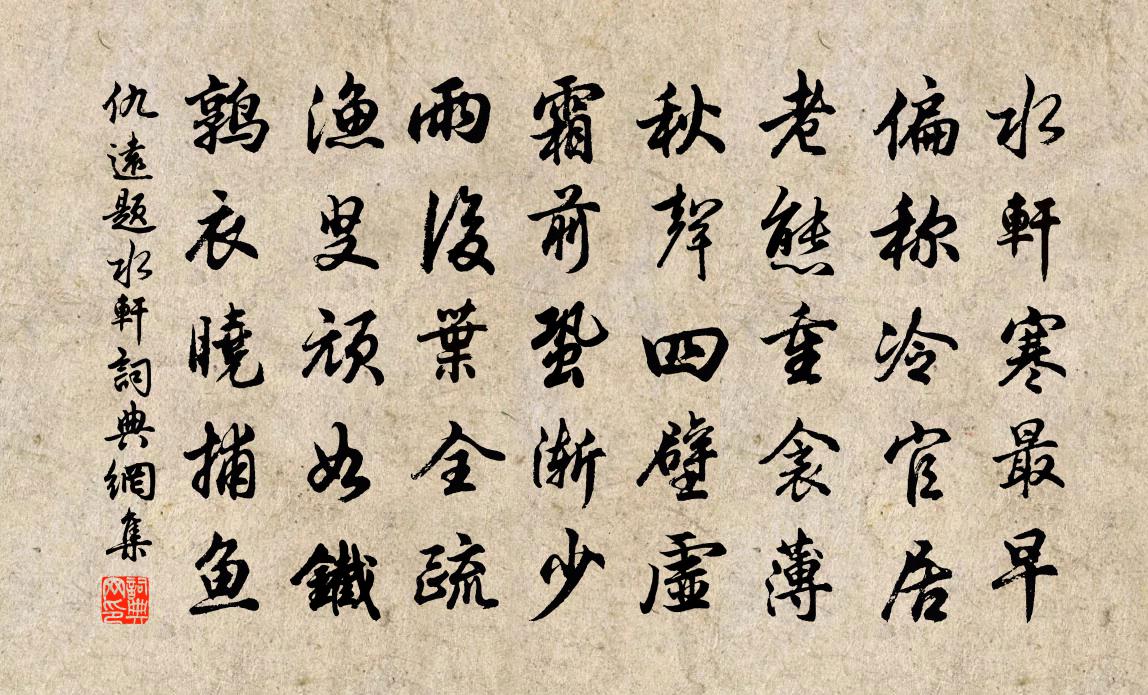 水軒寒最早
偏称冷官居
老態重衾薄
秋聲四壁虛
霜前蛩漸少
雨後葉全疏
漁叟頑如鐵
鶉衣曉捕魚
仇遠題水軒詞典網集
詞典网印